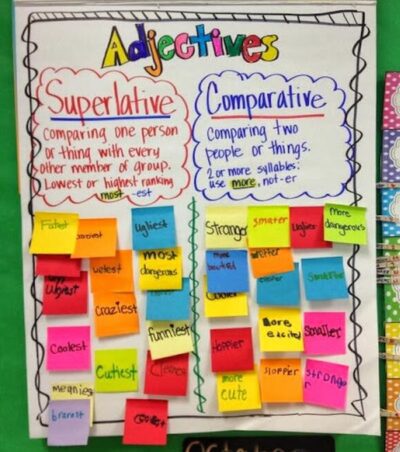 Adjectives
Superlative
Comparing one person
or thing with every
other member of group.
Lowest or highest ranking
most -est
Comparative
Comparing two
people or things.
2 or more syllables:
use more, not-er
ugliest
most
dangerous
wetest
craziest
funniest
Coolest
Cutiest
meanies
Stranger
smaller
more
dangerous
more
excited
Smaller
Hoppier
more
cute
sloppier
stronge
r